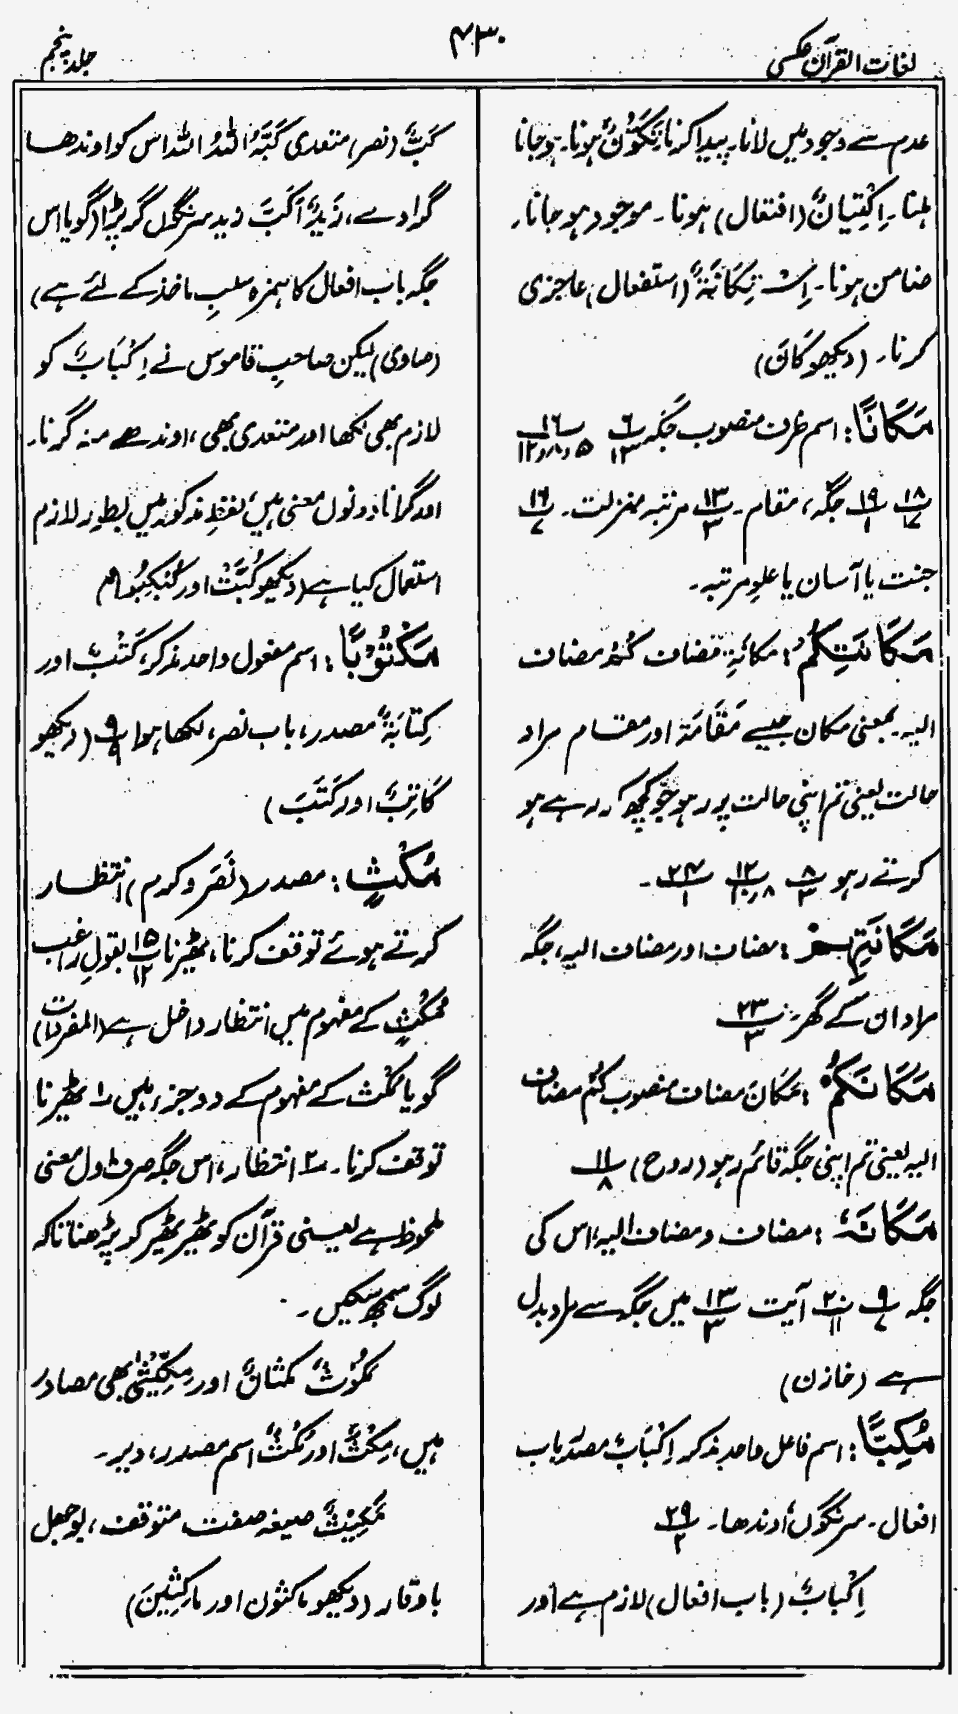 لغات القرآن عکسی
۴۳۰
جلد پنجم
عدم سے وجود میں لانا۔ پیدا کرنا تَکَوُّنٌ ہونا۔ ہو جانا
بننا۔ اِکْتِیَانٌ (افتعال) ہونا۔ موجود ہو جانا۔
ضامن ہونا۔ اِسْتِکَانَةٌ (استفعال) عاجزی
کرنا۔ (دیکھو کَانَ)
مَکَانًا: اسم ظرف منصوب جگہ ۶/۱۳ ۱۶/۵ر۸ر۱۲
۱۸/۱۷ ۱۹/۱ جگہ، مقام۔ ۱۳/۳ مرتبہ منزلت۔ ۱۶/۷
جنت یا آسان یا علوِ مرتبہ۔
مَکَانَتِکُمْ: مکانَۃِ مضاف کُمْ مضاف
الیہ۔ بمعنی مکان جیسے مَقَامَۃ اور مقام مراد
حالت یعنی تم اپنی حالت پر رہو جو کچھ کر رہے ہو
کرتے رہو ۸/۳ ۱۲/۸ر۱۰ ۲۴/۱ ۔
مَکَانَتِہِمْ: مضاف اور مضاف الیہ، جگہ
مراد ان کے گھر ۲۳/۳
مَکَانَکُمْ: مَکَانَ مضاف منصوب کُمْ مضاف
الیہ یعنی تم اپنی جگہ قائم رہو (روح) ۱۱/۸
مَکَانَہٗ: مضاف و مضاف الیہ، اس کی
جگہ ۹/۷ ۲۰/۱۱ آیت ۱۳/۳ میں جگہ سے مراد بدل
ہے (خازن)
مُکِبًّا: اسم فاعل واحد مذکر اِکْبَابٌ مصدر باب
افعال۔ سرنگوں، اوندھا۔ ۲۹/۲
اِکْبَابٌ (باب افعال) لازم ہے اور
کَبٌّ (نصر) متعدی کَبَّہُ اللّٰہُ اللہ اس کو اوندھا
گرا دے، زَیْدٌ اَکَبَّ زید سرنگوں گر پڑا (گویا اس
جگہ باب افعال کا ہمزہ سلبِ ماخذ کے لئے ہے)
(صاوی) لیکن صاحبِ قاموس نے اِکْبَابٌ کو
لازم بھی لکھا اور متعدی بھی، اوندھے منہ گرنا۔
اور گرانا دونوں معنی ہیں، لفظِ مذکور میں بطورِ لازم
استعمال کیا ہے (دیکھو کُبَّتْ اور کُبْکِبُوا)
مَکْتُوْبًا: اسم مفعول واحد مذکر، کَتْبٌ اور
کِتَابَةٌ مصدر، باب نصر، لکھا ہوا ۹/۹ (دیکھو
کَاتِبٌ اور کَتَبَ)
مُکْثٍ: مصدر (نَصَرَ و کَرُمَ) انتظار
کرتے ہوئے توقف کرنا، ٹھیرنا ۱۵/۱۲ بقولِ راغب
مُکْثٍ کے مفہوم میں انتظار داخل ہے (المفردات)
گویا مُکْث کے مفہوم کے دو جزء ہیں ۱؎ ٹھیرنا
توقف کرنا۔ ۲؎ انتظار، اس جگہ صرف اول معنی
ملحوظ ہے یعنی قرآن کو ٹھیر ٹھیر کر پڑھنا تاکہ
لوگ سمجھ سکیں۔
مُکُوْثٌ مُکْثَانٌ اور مِکِّیْثٰی بھی مصادر
ہیں، مِکْثٌ اور مُکْثٌ اسم مصدر، دیر۔
مَکِیْثٌ صیغہ صفت متوقف، بوجھل
باوقار (دیکھو ماکثون اور مَاکِثِیْنَ)